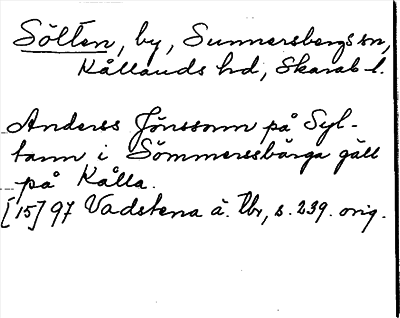 Sölten, by, Sunnersbergs sn,
Kållands hd, Skarab. l.
Anderss Jönssonn på Syl-
tann i Sömmerssbärga gäll
på Kålla.
[15]97 Vadstena ä. tbr, s. 239. orig.